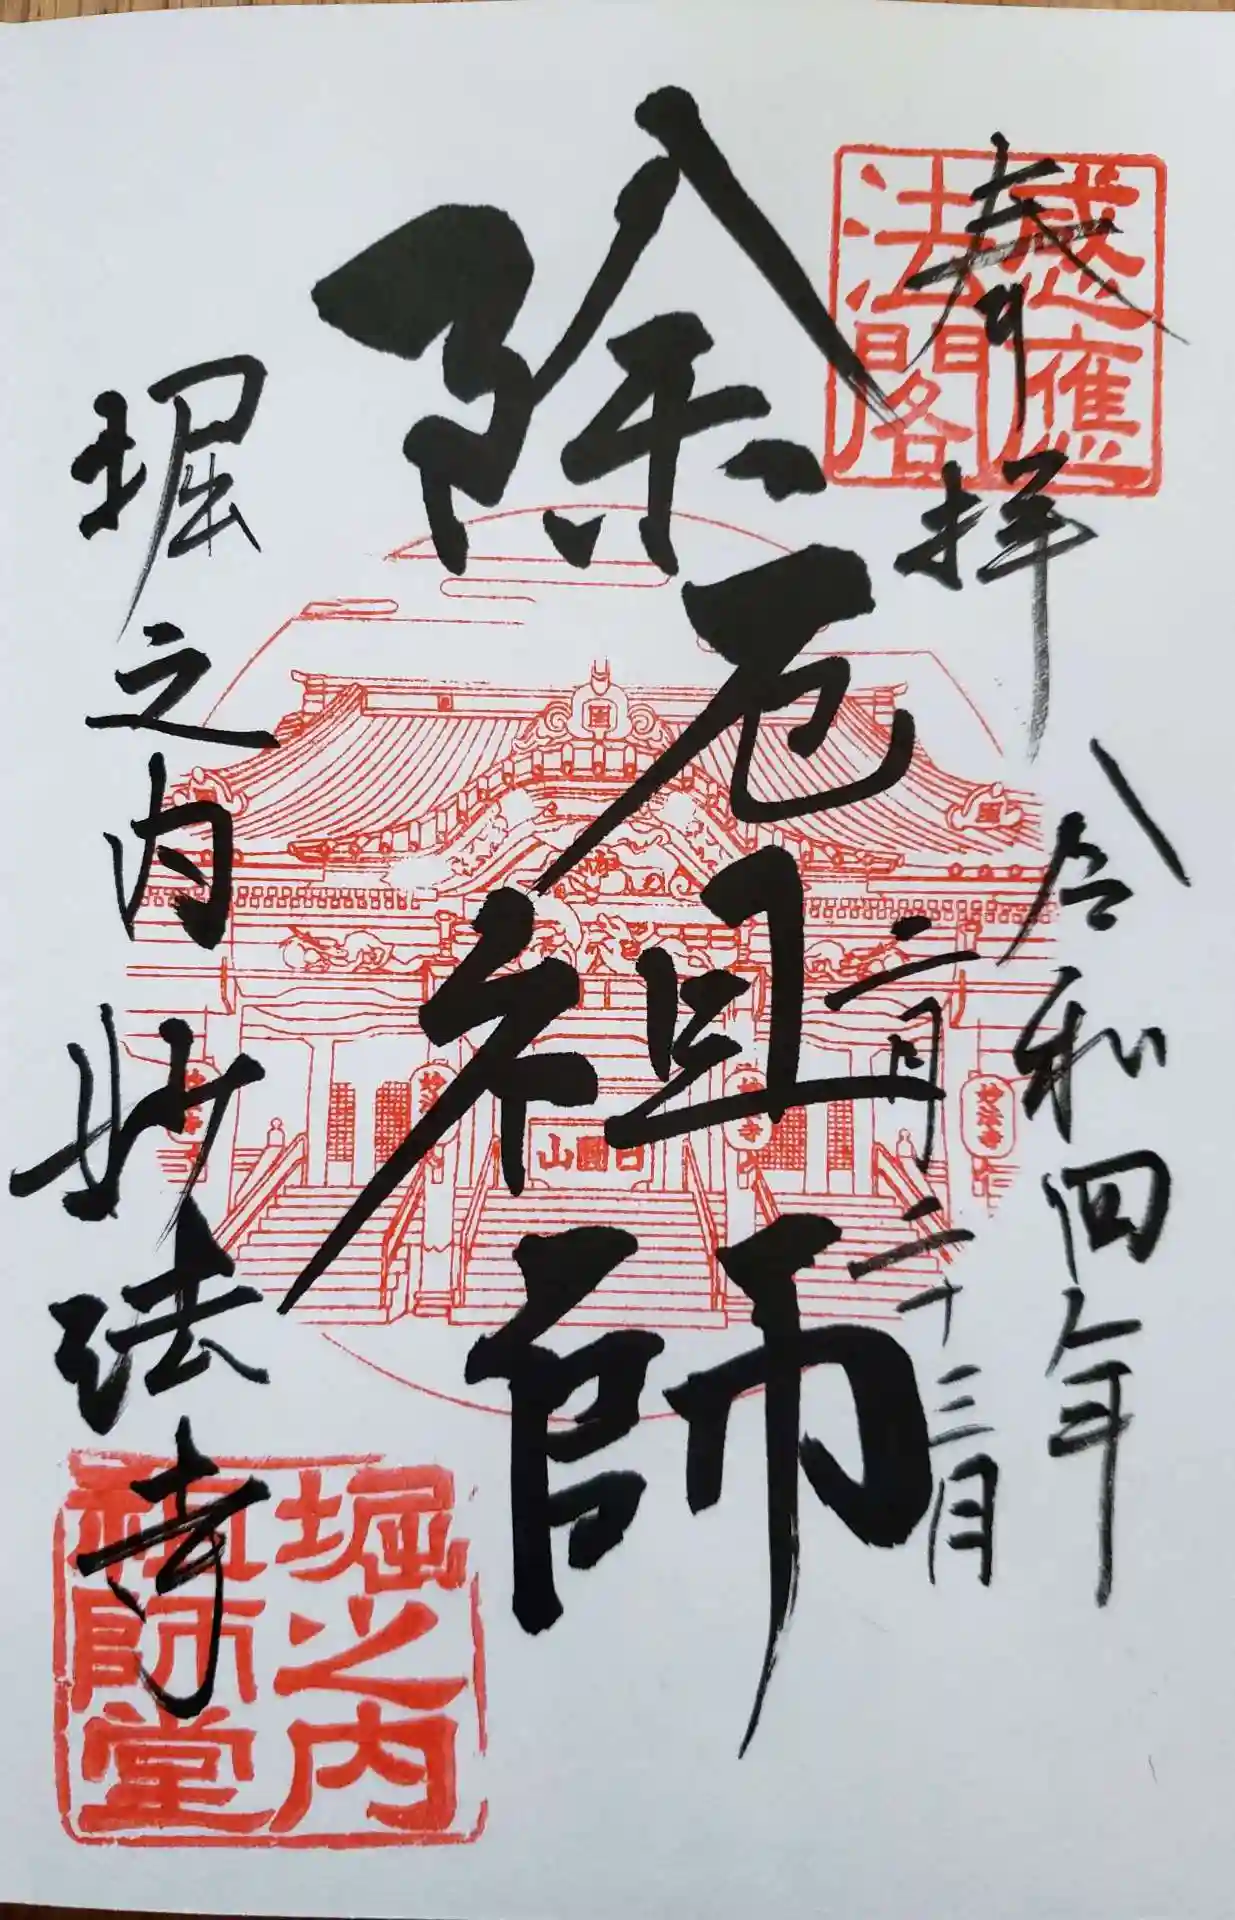 奉拝
令和四年
二月二十三日
除厄祖師
堀之内妙法寺
感應
法閣
日圓山
妙法寺
妙法寺
堀之内
祖師堂